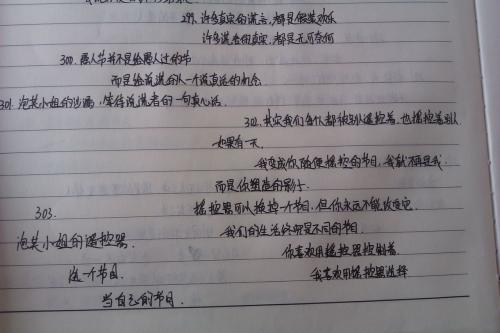 299. 许多真实的谎言,都是假装欢乐
许多谎言的真实,都是无可奈何
300. 愚人节并不是给愚人过的节
而是给说谎的人一个说真话的机会
301. 泡芙小姐的沙漏,等待说谎者的一句真心话.
302. 其实我们每个人都被别人遥控着.也遥控着别人
如果有一天.
我变成你随便摇控的节目,我就不再是我.
而是你塑造的影子.
摇控器可以换掉一个节目.但你永远不能改变它
我们的生活终究是不同的节目.
你喜欢用摇控器控制着.
我喜欢用摇控器选择
303.
泡芙小姐的遥控器.
选一个节目.
当自己的节目.